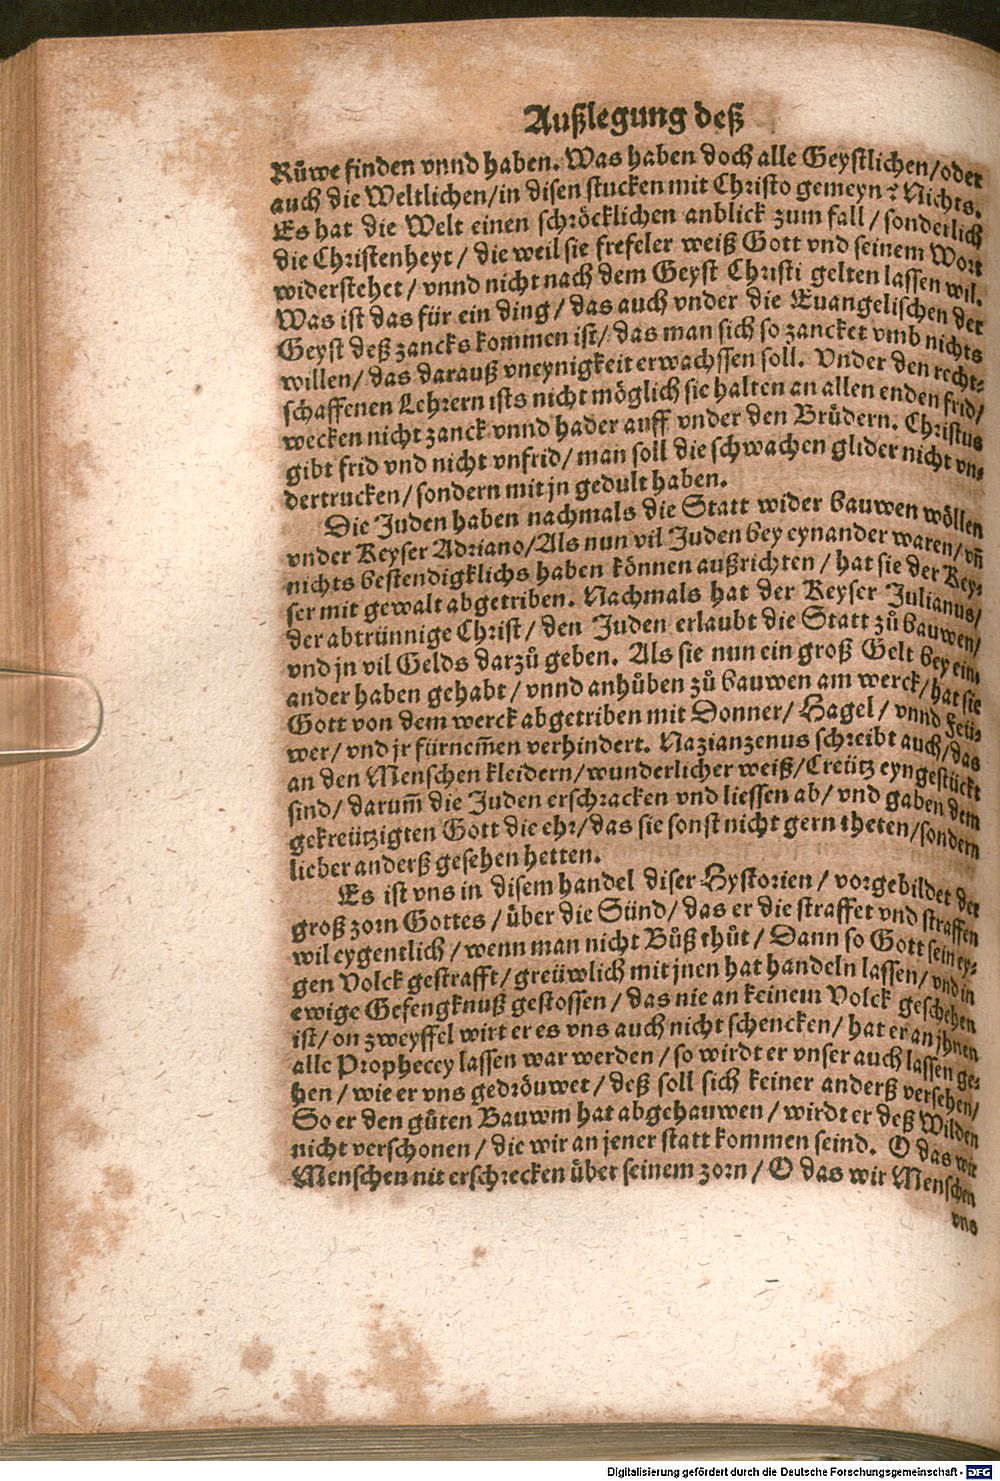 Außlegung deß
Růwe finden vnnd haben. Was haben doch alle Geystlichen/oder
auch die Weltlichen/in disen stucken mit Christo gemeyn? Nichts.
Es hat die Welt einen schröcklichen anblick zum fall/sonderlich
die Christenheyt/die weil sie frefeler weiß Gott vnd seinem Wort
widerstehet/vnnd nicht nach dem Geyst Christi gelten lassen wil.
Was ist das für ein ding/das auch vnder die Euangelischen der
Geyst deß zancks kommen ist/das man sich so zancket vmb nichts
willen/das darauß vneynigkeit erwachssen soll. Vnder den recht-
schaffenen Lehrern ists nicht möglich sie halten an allen enden frid/
wecken nicht zanck vnnd hader auff vnder den Brüdern. Christus
gibt frid vnd nicht vnfrid/man soll die schwachen glider nicht vn-
dertrucken/sondern mit jn gedult haben.
Die Juden haben nachmals die Statt wider bauwen wöllen
vnder Keyser Adriano/Als nun vil Juden bey eynander waren/vñ
nichts bestendigklichs haben können außrichten/hat sie der Key-
ser mit gewalt abgetriben. Nachmals hat der Keyser Julianus/
der abtrünnige Christ/den Juden erlaubt die Statt zů bauwen/
vnd jn vil Gelds darzů geben. Als sie nun ein groß Gelt bey ein-
ander haben gehabt/vnnd anhůben zů bauwen am werck/hat sie
Gott von dem werck abgetriben mit Donner/Hagel/vnnd Feü-
wer/vnd jr fürnem̃en verhindert. Nazianzenus schreibt auch/das
an den Menschen kleidern/wunderlicher weiß/Creütz eyngestückt
sind/darum̃ die Juden erschracken vnd liessen ab/vnd gaben dem
gekreützigten Gott die ehr/das sie sonst nicht gern theten/sondern
lieber anderß gesehen hetten.
Es ist vns in disem handel diser Hystorien/vorgebildet der
groß zorn Gottes/über die Sünd/das er die straffet vnd straffen
wil eygentlich/wenn man nicht Bůß thůt/Dann so Gott sein ey-
gen Volck gestrafft/greüwlich mit jnen hat handeln lassen/vnd in
ewige Gefengknuß gestossen/das nie an keinem Volck geschehen
ist/on zweyffel wirt er es vns auch nicht schencken/hat er an jhnen
alle Prophecey lassen war werden/so wirdt er vnser auch lassen ge-
hen/wie er vns gedröuwet/deß soll sich keiner anderß versehen/
So er den gůten Bauwm hat abgehauwen/wirdt er deß Wilden
nicht verschonen/die wir an jener statt kommen seind. O das wir
Menschen nit erschrecken über seinem zorn/O das wir Menschen
vns
Digitalisierung gefördert durch die Deutsche Forschungsgemeinschaft - DFG